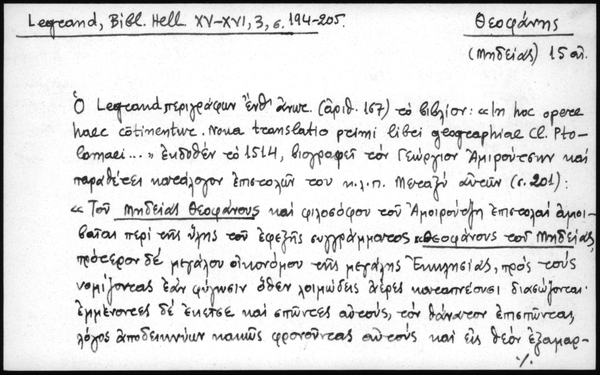 Legrand, Bibl. Hell. XV-XVI, 3, σ. 194-205.
Θεοφάνης
(Μηδείας) 15 αἰ.
Ὁ Legrand περιγράφων ἔνθ' ἀνωτ. (ἀριθ. 167) τὸ βιβλίον: «In hoc opere
haec cōtinentur. Noua translatio primi libri geographiae Cl. Pto-
lomaei...» ἐκδοθὲν τὸ 1514, βιογραφεῖ τὸν Γεώργιον Ἀμιρούτσην καὶ
παραθέτει κατάλογον ἐπιστολῶν του κ.λ.π. Μεταξὺ αὐτῶν (σ. 201):
«Τοῦ Μηδείας Θεοφάνους καὶ φιλοσόφου τοῦ Ἀμοιρούτζη ἐπιστολαὶ ἀμοι-
βαῖαι περὶ τῆς ὕλης τοῦ ἐφεξῆς συγγράμματος «Θεοφάνους τοῦ Μηδείας,
πρότερον δὲ μεγάλου οἰκονόμου τῆς μεγάλης Ἐκκλησίας, πρὸς τοὺς
νομίζοντας ἐὰν φύγωσιν ὅθεν λοιμώδεις ἀέρες καταπνέουσι διασώζονται·
ἐμμένοντες δὲ ἐκεῖσε καὶ σπῶντες αὐτούς, τὸν θάνατον ἐπισπῶνται,
λόγος ἀποδεικνύων κακῶς φρονοῦντας αὐτοὺς καὶ εἰς θεὸν ἐξαμαρ-
./.